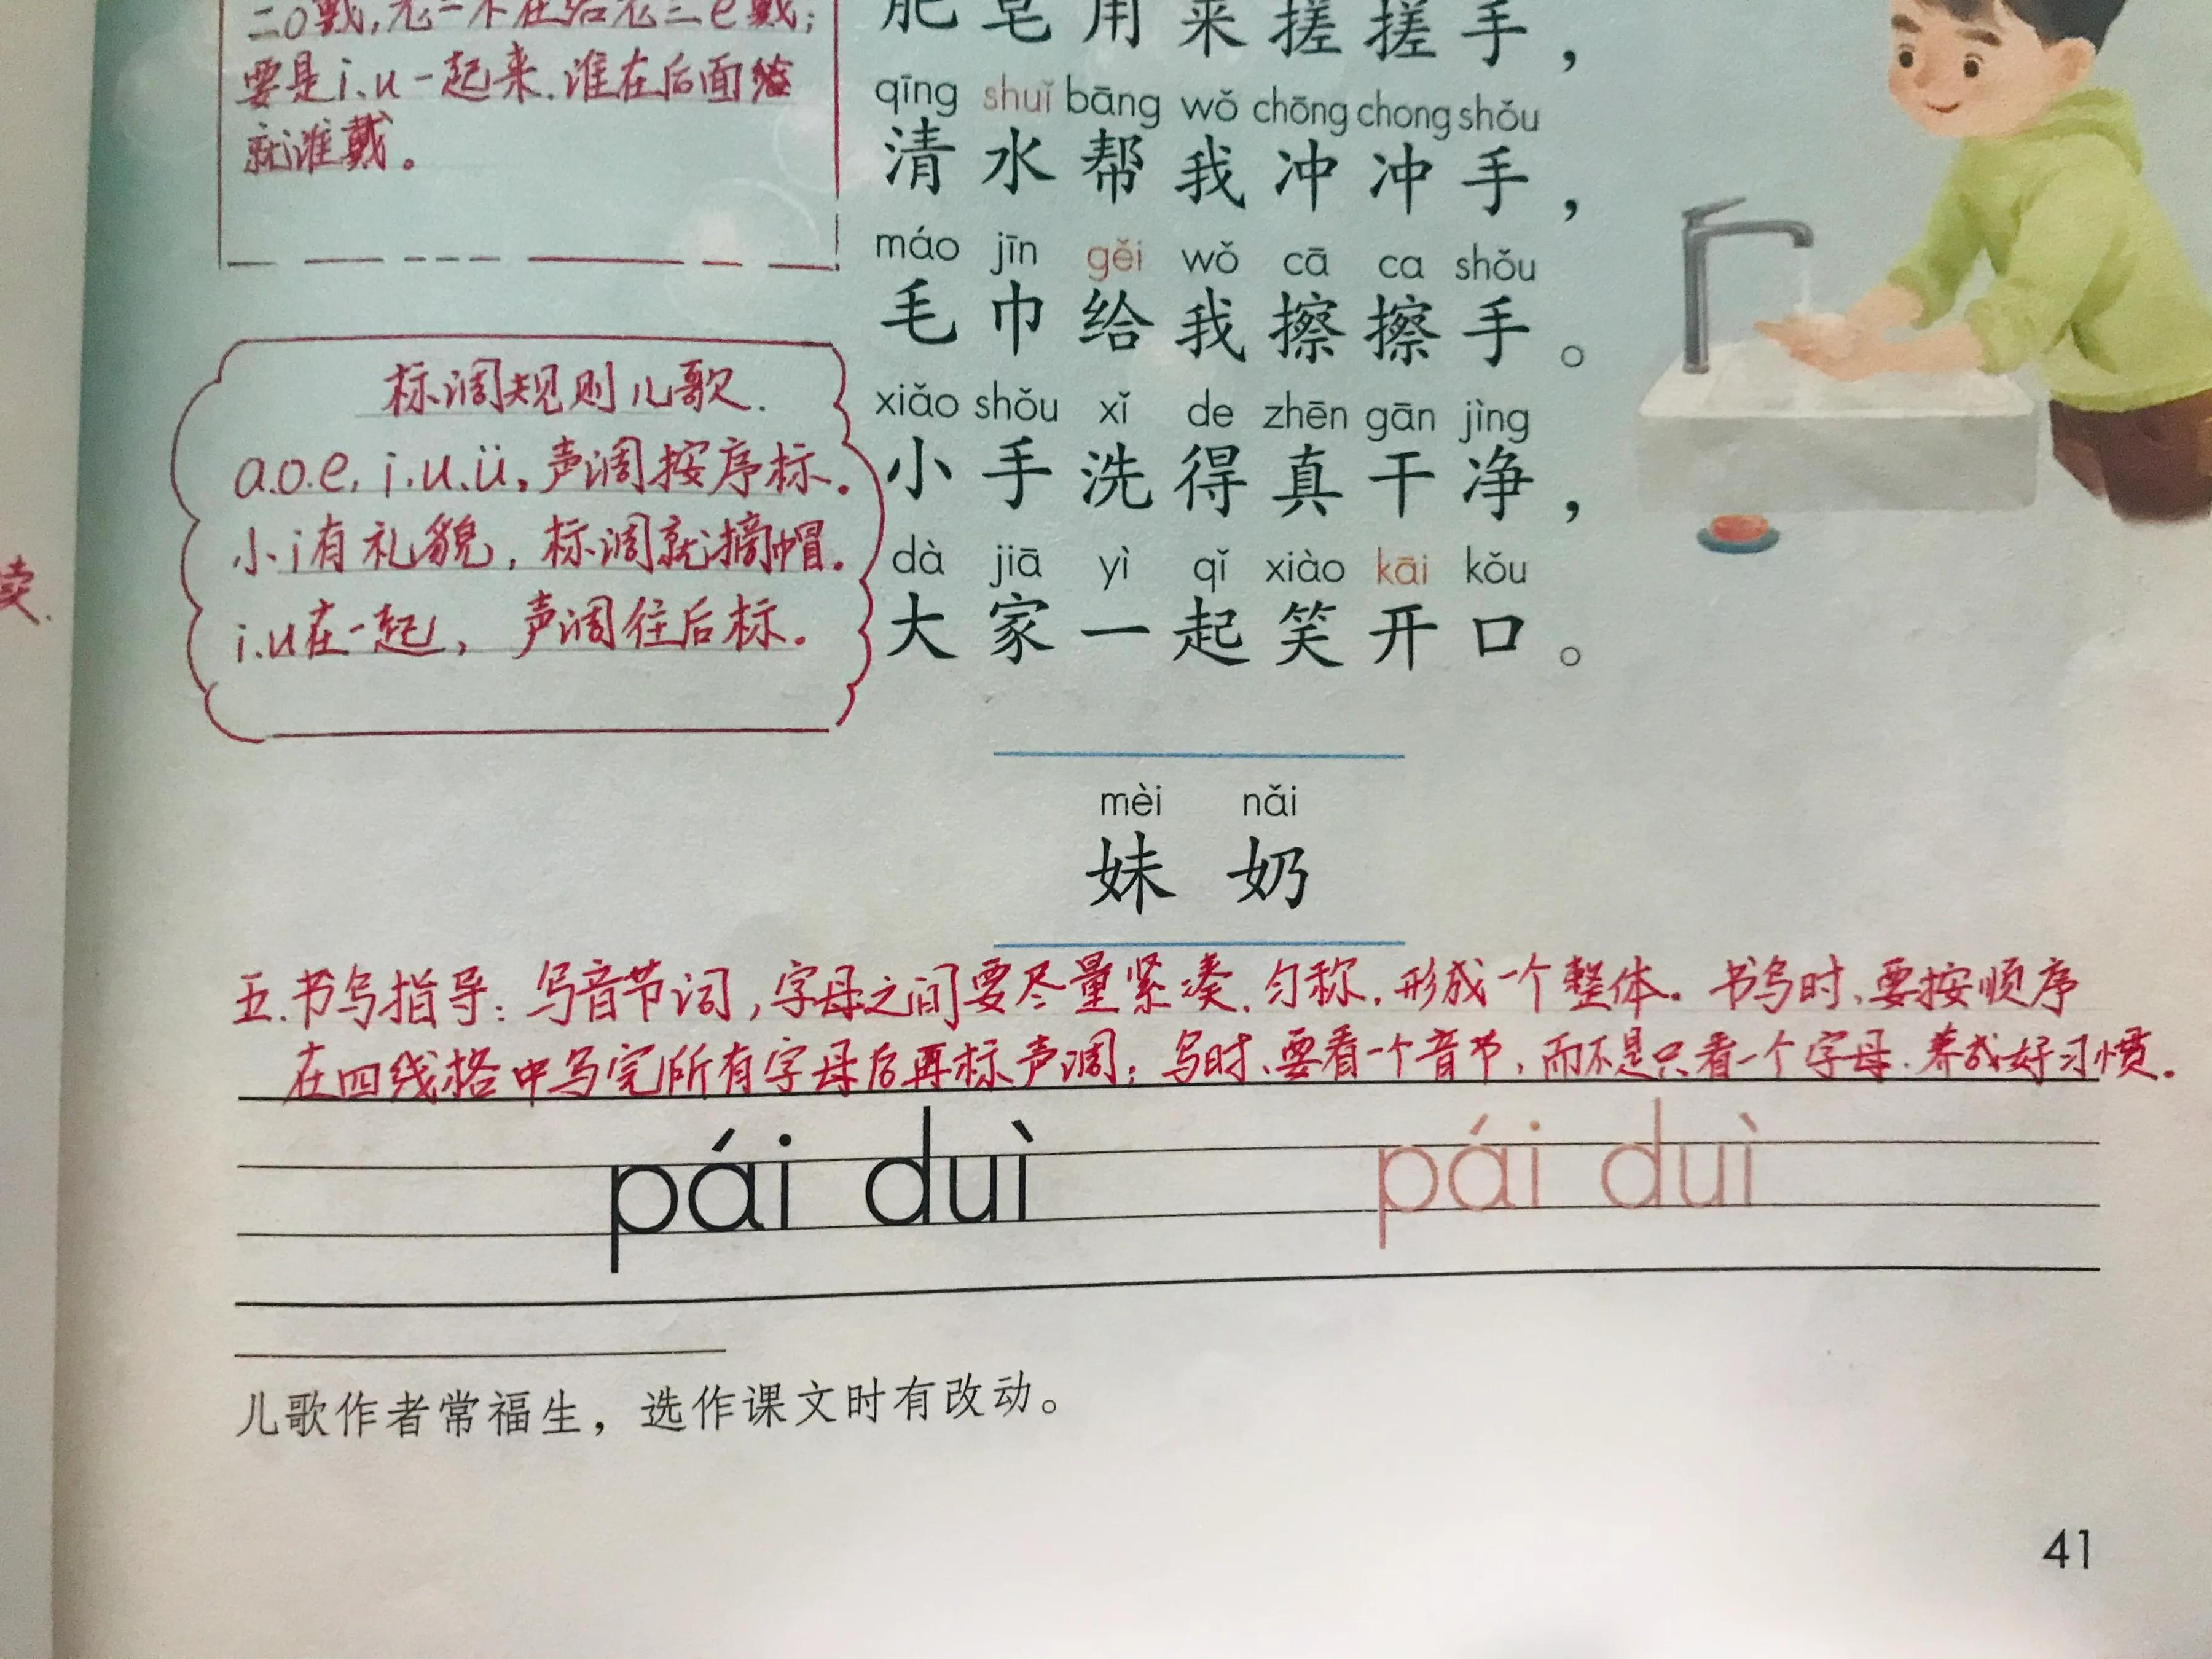 二o戴,老一不在给老三e戴;
要是i、u一起来.谁在后面
就谁戴。
标调规则儿歌.
a.o.e, i.u.ü,声调按序标。
小i有礼貌,标调就摘帽.
i.u在一起,声调往后标.
卖.
肥皂用来搓搓手,
qīng shuǐ bāng wǒ chōng chong shǒu
清水帮我冲冲手,
máo jīn gěi wǒ cā ca shǒu
毛巾给我擦擦手。
xiǎo shǒu xǐ de zhēn gān jìng
小手洗得真干净,
dà jiā yì qǐ xiào kāi kǒu
大家一起笑开口。
mèi nǎi
妹 奶
五.书写指导:写音节词,字母之间要尽量紧凑.匀称,形成一个整体。书写时、要按顺序
在四线格中写完所有字母后再标声调;写时、要看一个音节,而不是只看一个字母.养成好习惯.
pái duì pái duì
儿歌作者常福生,选作课文时有改动。
41